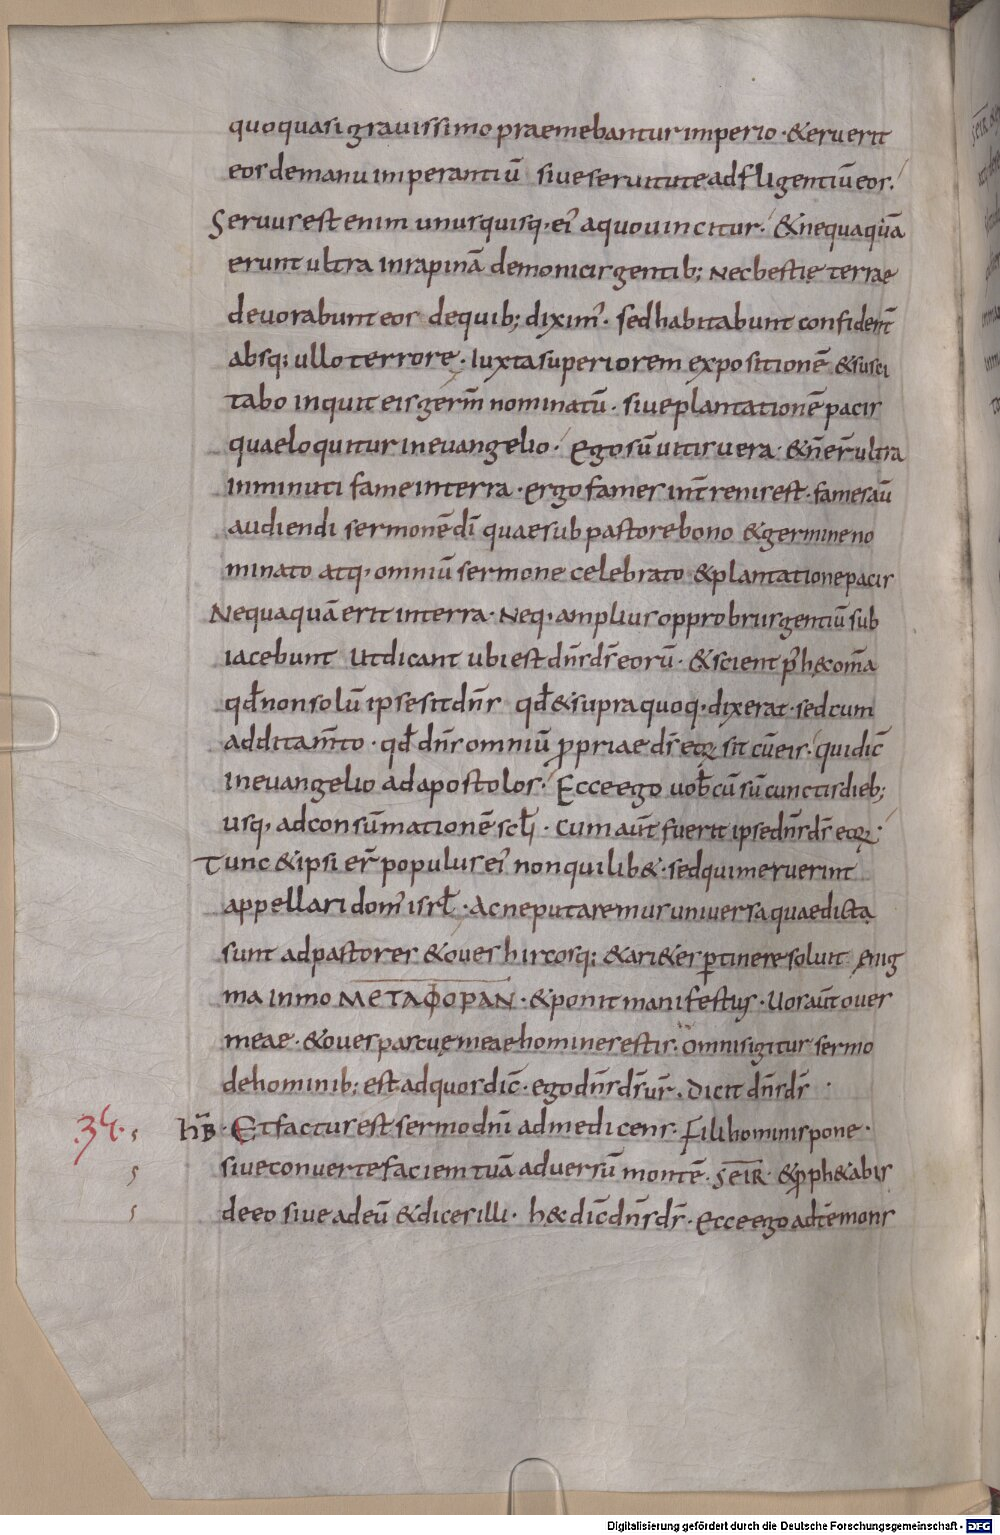 quo quasi gravissimo praemebantur imperio · & eruerit
eos de manu imperantiū sive servitute adfligentiū eos.
Servus est enim unusquisq· ei' a quo vincitur. & nequaquā
erunt ultra in rapinā demonicis gentib; Nec bestię terrae
devorabunt eos de quib; dixim' · sed habitabunt confident̄
absq; ullo terrore · Iuxta superiorem expositionē & susci
tabo inquit eis germ̄ nominatū · sive plantationē pacis
quae loquitur in evangelio · Ego sū vitis vera · & n̄ er̄ ultra
inminuti fame in terra · ergo fames in t̄renis est · fames aū
audiendi sermonē dī quae sub pastore bono & germine no
minato atq· omniū sermone celebrato & plantatione pacis
Nequaquā erit in terra · Neq· amplius opprobriis gentiū sub
iacebunt Ut dicant ubi est dn̄s ds̄ eorū · & scient p' h&c om̄a
qđ non solū ipse sit dn̄s qđ & supra quoq· dixerat · sed cum
additam̄to · qđ dn̄s omniū propriae ds̄ eoꝝ sit cū eis · qui dic̄
in evangelio ad apostolos · Ecce ego vob̄cū sū cunctis dieb;
usq· ad consūmationē scl̄i · Cum aut̄ fuerit ipse dn̄s ds̄ eoꝝ ·
Tunc & ipsi er̄ populus ei' non quilib& · sed qui meruerint
appellari dom' isrł · Ac ne putaremus universa quae dicta
sunt ad pastores & oves hircosq; & ari&es ꝑtinere solvit enig
ma inmo ΜΕΤΑΦΟΡΑΝ · & ponit manifestius · Vos aut̄ oves
meae · & oves pascuę meae homines estis · Omnis igitur sermo
de hominib; est ad quos dic̄ · ego dn̄s ds̄ vr̄ · Dicit dn̄s ds̄ ·
.34. hB̄ · Et factus est sermo dn̄i ad me dicens · Fili hominis pone ·
sive converte faciem tuā adversū montē · SEIR · & proph&abis
de eo sive ad eū & dices illi · h&c dic̄ dn̄s ds̄ · Ecce ego ad te mons
Digitalisierung gefördert durch die Deutsche Forschungsgemeinschaft - DFG